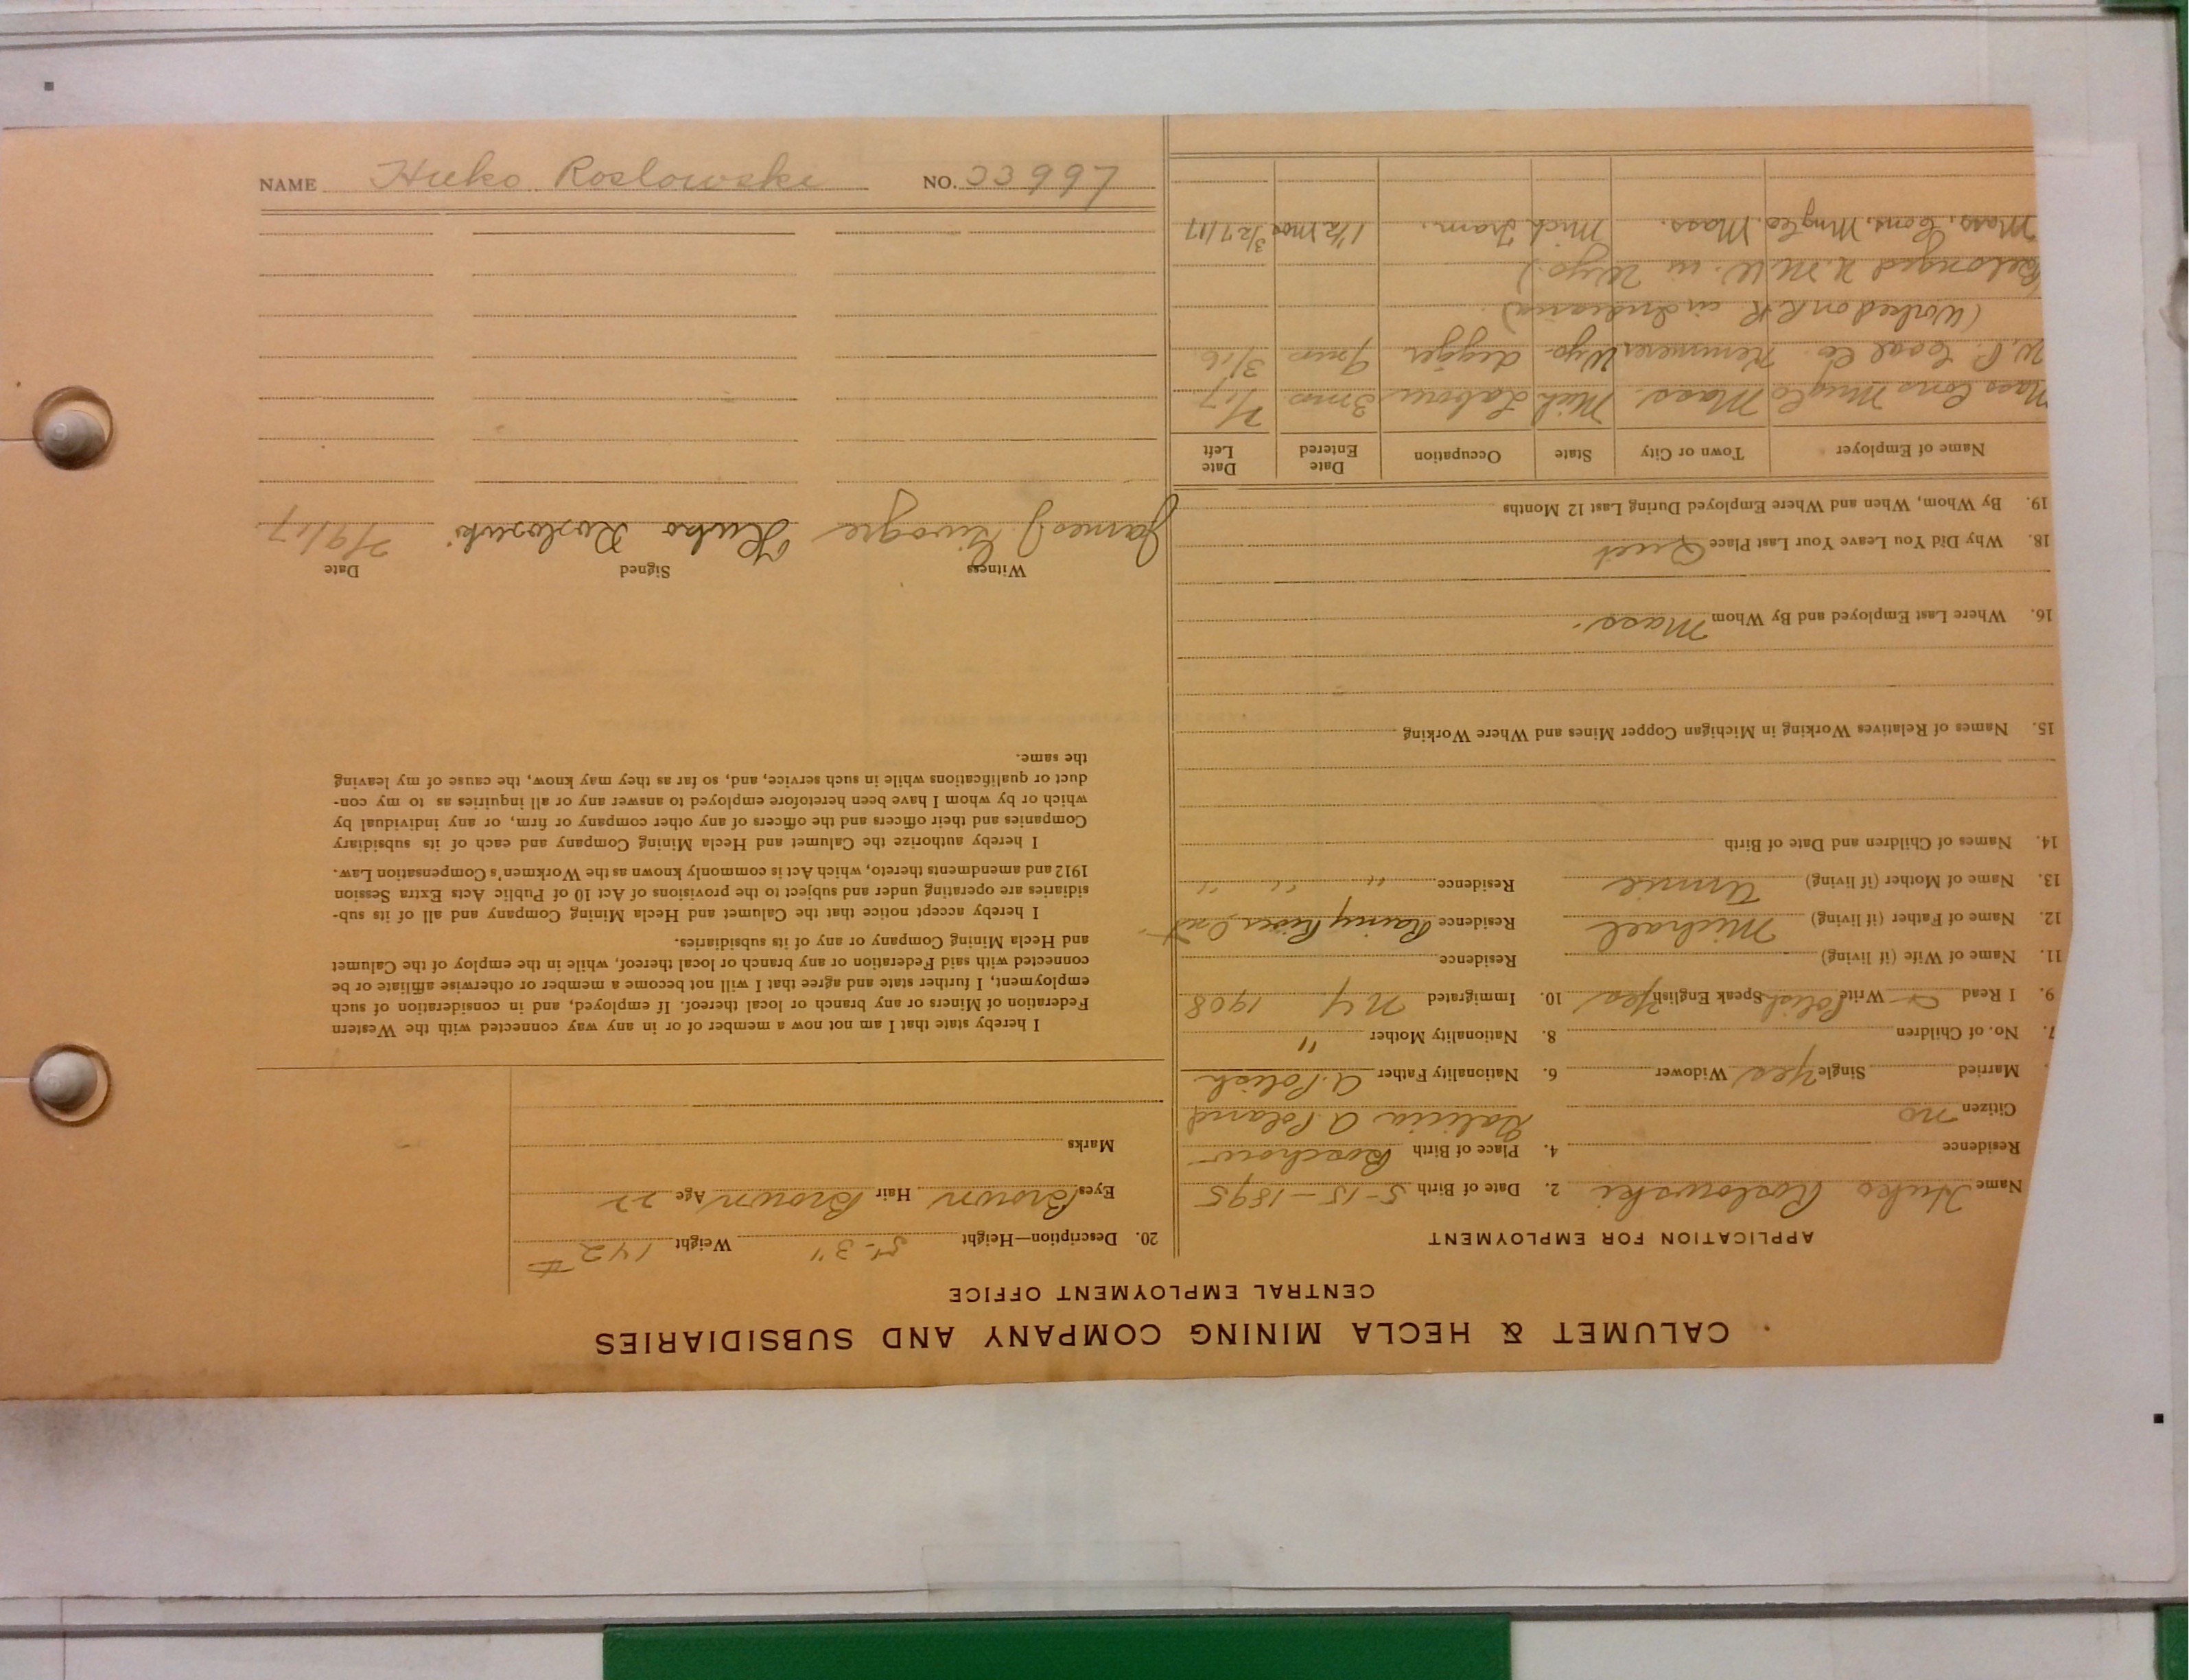 CALUMET & HECLA MINING COMPANY AND SUBSIDIARIES
CENTRAL EMPLOYMENT OFFICE
APPLICATION FOR EMPLOYMENT
Name Huko Roslowski 2. Date of Birth 5-15-1895
Residence 4. Place of Birth Boschow
Galicia A. Poland
Citizen no
Married Single Yes Widower 6. Nationality Father A. Polish
7. No. of Children 8. Nationality Mother "
9. I Read Write Polish Speak English Yes 10. Immigrated NY 1908
11. Name of Wife (if living) Residence
12. Name of Father (if living) Michael Residence Rainy River Ont
13. Name of Mother (if living) Annie Residence " " "
14. Names of Children and Date of Birth
15. Names of Relatives Working in Michigan Copper Mines and Where Working
16. Where Last Employed and By Whom Mass.
18. Why Did You Leave Your Last Place Quit
19. By Whom, When and Where Employed During Last 12 Months
Name of Employer Town or City State Occupation Date Entered Date Left
Mass Cons Mng Co Mass. Mich Labour 3 mos 7/17
U. P. Coal Co Kemmerer Wyo. digger 9 mos 3/16
(Worked on R.R. in Indiana)
Belonged U.M.W. in Wyo.)
Mass. Cons. Mng Co. Mass. Mich Tram. 1 1/2 mos 3/27/17
20. Description—Height 5'-3" Weight 142#
Eyes Brown Hair Brown Age 22
Marks
I hereby state that I am not now a member of or in any way connected with the Western
Federation of Miners or any branch or local thereof. If employed, and in consideration of such
employment, I further state and agree that I will not become a member or otherwise affiliate or be
connected with said Federation or any branch or local thereof, while in the employ of the Calumet
and Hecla Mining Company or any of its subsidiaries.
I hereby accept notice that the Calumet and Hecla Mining Company and all of its sub-
sidiaries are operating under and subject to the provisions of Act 10 of Public Acts Extra Session
1912 and amendments thereto, which Act is commonly known as the Workmen's Compensation Law.
I hereby authorize the Calumet and Hecla Mining Company and each of its subsidiary
Companies and their officers and the officers of any other company or firm, or any individual by
which or by whom I have been heretofore employed to answer any or all inquiries as to my con-
duct or qualifications while in such service, and, so far as they may know, the cause of my leaving
the same.
Date Signed Witness
7/9/17 Huko Rosloski James J.
NAME Huko Roslowski NO. 33997